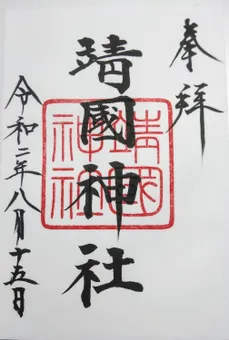 奉拝
靖國神社
靖国神社
令和二年八月十五日